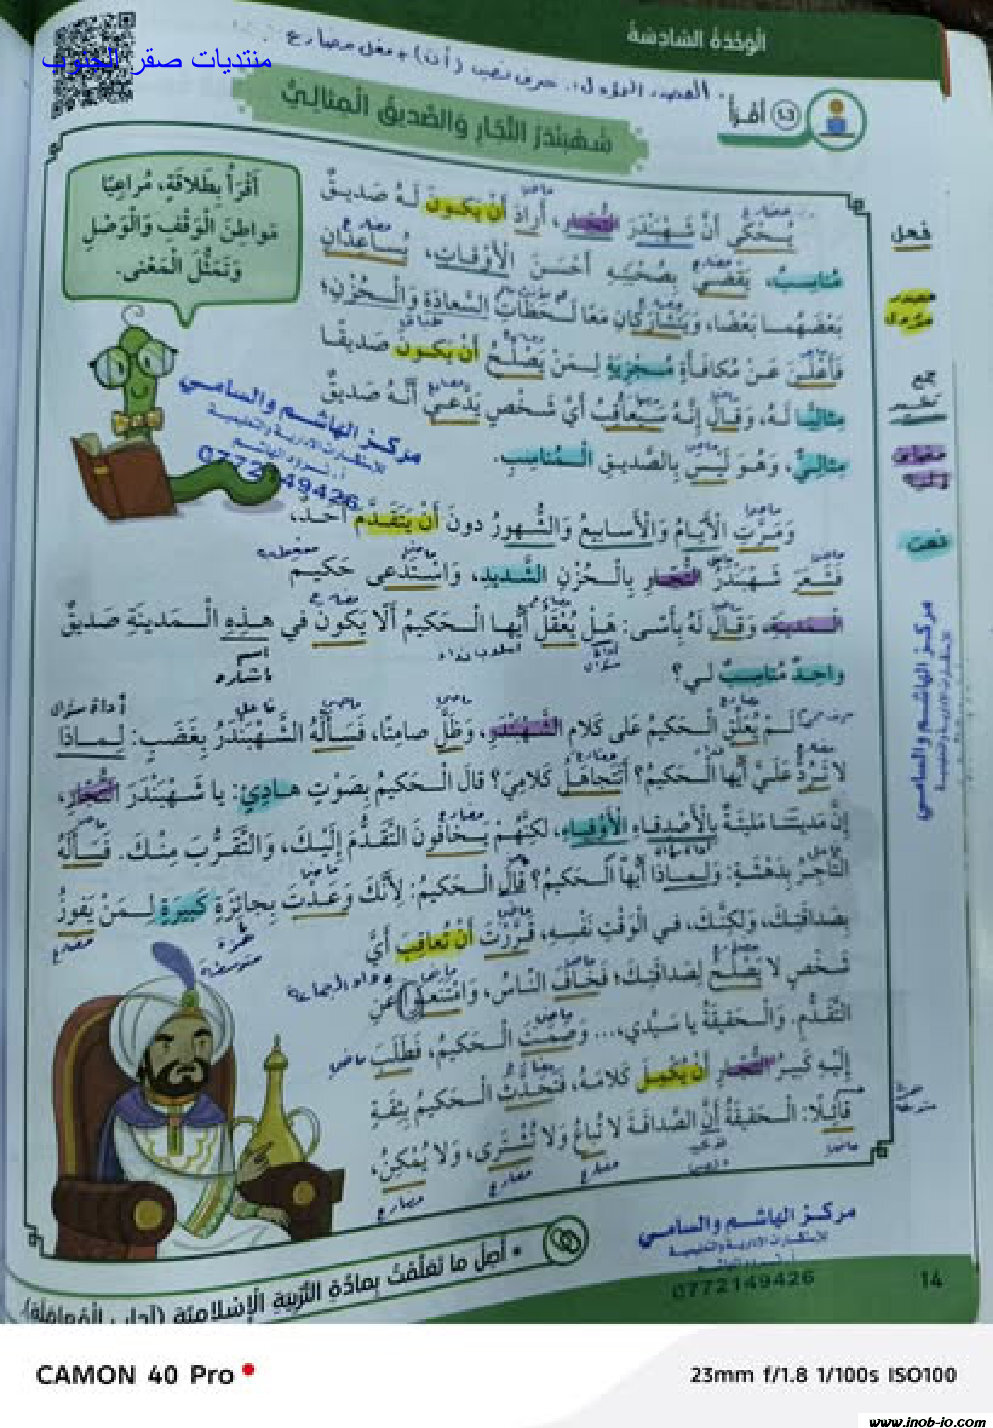 الْوَحْدَةُ السّادِسَةُ
منتديات صقر الجنوب
المصدر المؤول: حرف نصب (أن) + فعل مضارع
أَقْرَأُ
شَهْبَنْدَرُ التُّجّارِ وَالصَّديقُ الْمِثالِيُّ
أَقْرَأُ بِطَلاقَةٍ، مُراعِيًا
مَواطِنَ الْوَقْفِ وَالْوَصْلِ
وَتَمَثُّلَ الْمَعْنى.
يُحْكى أَنَّ شَهْبَنْدَرَ التُّجّارِ، أَرادَ أَنْ يَكونَ لَهُ صَديقٌ
مُناسِبٌ، يَقْضي بِصُحْبَتِهِ أَحْسَنَ الْأَوْقاتِ، يُساعِدانِ
بَعْضَهُما بَعْضًا، وَيَتَشارَكانِ مَعًا لَحَظاتِ السَّعادَةِ وَالْحُزْنِ؛
فَأَعْلَنَ عَنْ مُكافَأَةٍ مُجْزِيَةٍ لِمَنْ يَصْلُحُ أَنْ يَكونَ صَديقًا
مِثالِيًّا لَهُ، وَقالَ إِنَّهُ سَيُعاقِبُ أَيَّ شَخْصٍ يَدَّعي أَنَّهُ صَديقٌ
مِثالِيٌّ، وَهُوَ لَيْسَ بِالصَّديقِ الْمُناسِبِ.
وَمَرَّتِ الْأَيّامُ وَالْأَسابيعُ وَالشُّهورُ دونَ أَنْ يَتَقَدَّمَ أَحَدٌ،
فَشَعَرَ شَهْبَنْدَرُ التُّجّارِ بِالْحُزْنِ الشَّديدِ، وَاسْتَدْعى حَكيمَ
الْمَدينَةِ، وَقالَ لَهُ بِأَسًى: هَلْ يُعْقَلُ أَيُّها الْحَكيمُ أَلّا يَكونَ في هذِهِ الْمَدينَةِ صَديقٌ
واحِدٌ مُناسِبٌ لي؟
لَمْ يُعَلِّقِ الْحَكيمُ عَلى كَلامِ الشَّهْبَنْدَرِ، وَظَلَّ صامِتًا، فَسَأَلَهُ الشَّهْبَنْدَرُ بِغَضَبٍ: لِماذا
لا تَرُدُّ عَلَيَّ أَيُّها الْحَكيمُ؟ أَتَتَجاهَلُ كَلامِيَ؟ قالَ الْحَكيمُ بِصَوْتٍ هادِئٍ: يا شَهْبَنْدَرَ التُّجّارِ،
إِنَّ مَدينَتَنا مَليئَةٌ بِالْأَصْدِقاءِ الْأَوْفِياءِ، لكِنَّهُمْ يَخافونَ التَّقَدُّمَ إِلَيْكَ، وَالتَّقَرُّبَ مِنْكَ. فَسَأَلَهُ
التّاجِرُ بِدَهْشَةٍ: وَلِماذا أَيُّها الْحَكيمُ؟ قالَ الْحَكيمُ: لِأَنَّكَ وَعَدْتَ بِجائِزَةٍ كَبيرَةٍ لِمَنْ يَفوزُ
بِصَداقَتِكَ، وَلكِنَّكَ، في الْوَقْتِ نَفْسِهِ، قَرَّرْتَ أَنْ تُعاقِبَ أَيَّ
شَخْصٍ لا يَصْلُحُ لِصَداقَتِكَ؛ فَخافَ النّاسُ، وَامْتَنَعوا عَنِ
التَّقَدُّمِ. وَالْحَقيقَةُ يا سَيِّدي،... وَصَمَتَ الْحَكيمُ، فَطَلَبَ
إِلَيْهِ كَبيرُ التُّجّارِ أَنْ يُكْمِلَ كَلامَهُ، فَتَحَدَّثَ الْحَكيمُ بِثِقَةٍ
قائِلًا: الْحَقيقَةُ أَنَّ الصَّداقَةَ لا تُباعُ وَلا تُشْتَرى، وَلا يُمْكِنُ،
فعل
مصدر مؤول
جمع
نعت
مركز الهاشم والسامي
0772149426
• أَصِلُ ما تَعَلَّمْتُ بِمادَّةِ التَّرْبِيَةِ الْإِسْلامِيَّةِ (آداب الْمُعامَلَة).
14
CAMON 40 Pro
23mm f/1.8 1/100s ISO100
www.inob-jo.com